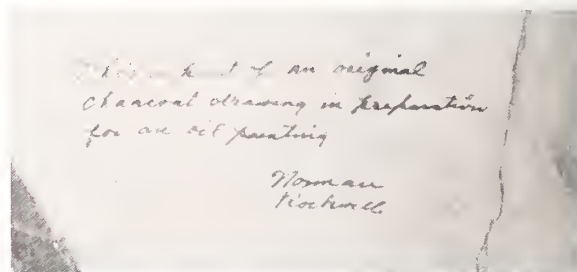 This of an original
charcoal drawing in preparation
for an oil painting
Norman
Rockwell